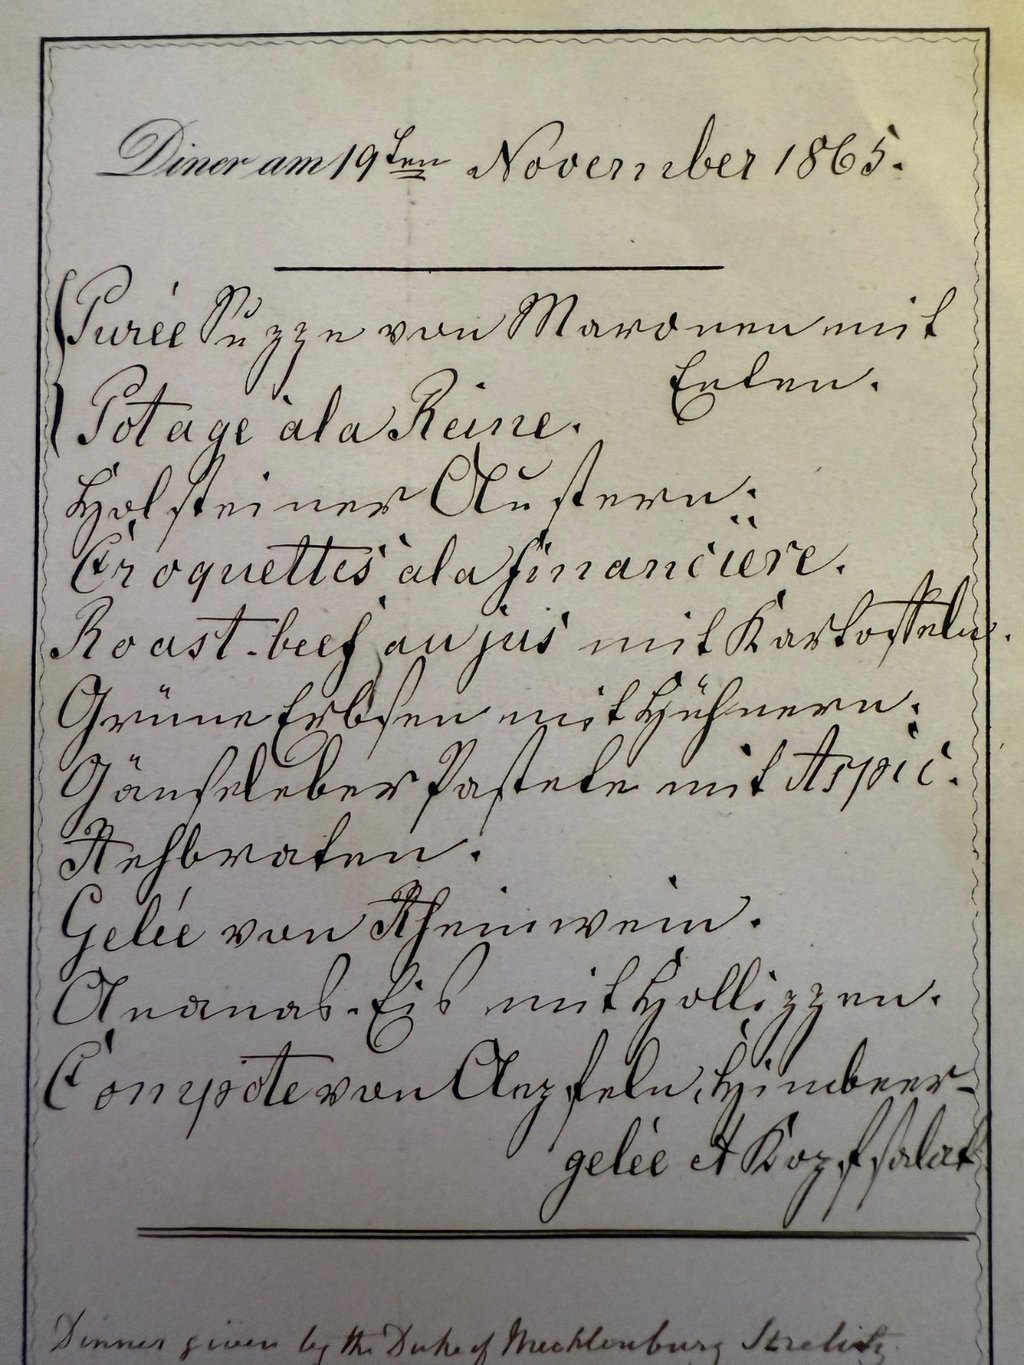 Diner am 19ten November 1865.
Purée Suppe von Maronen mit
Enten.
Potage à la Reine.
Holsteiner Austern.
Croquettes à la financière.
Roast-beef au jus mit Kartoffeln.
Grüne Erbsen mit Hühnern.
Gänseleber Pastete mit Aspic.
Rehbraten.
Gelée von Rheinwein.
Ananas-Eis mit Hollippen.
Compôte von Aepfeln, Himbeer-
gelée & Kopfsalat
Dinner given by the Duke of Mecklenburg Strelitz